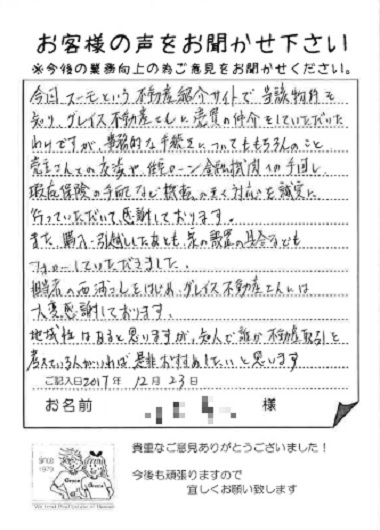 お客様の声をお聞かせ下さい
※今後の業務向上の為ご意見をお聞かせください。
今回、スーモという不動産紹介サイトで当該物件を
知り、グレイス不動産さんに売買の仲介をしていただいた
わけですが、事務的な手続きについてももちろんのこと
売主さんとの交渉や住宅ローン金融機関への手回し、
瑕疵保険の手配など機動の良く対応を誠実に
行っていただいて感謝しております。
また、購入・引越ししたあとも、家の設置の具合なども
フォローしていただきました。
担当者の西浦さんをはじめ、グレイス不動産さんには
大変感謝しております。
地域性はあると思いますが、知人で誰か不動産取引を
考えている人がいれば是非おすすめしたいと思います
ご記入日2017年 12月 23日
お名前 様
貴重なご意見ありがとうございました!
今後も頑張りますので
宜しくお願い致します